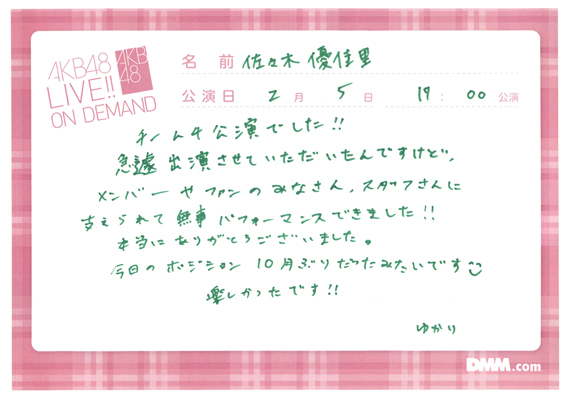 AKB48
LIVE!!
ON DEMAND
AKB
48
名前 佐々木 優佳里
公演日 2月 5日 17:00公演
チームA公演でした!!
急遽 出演させていただいたんですけど、
メンバーやファンのみなさん、スタッフさんに
支えられて無事パフォーマンスできました!!
本当にありがとうございました。
今日のポジション 10月ぶりだったみたいです
楽しかったです!!
ゆかり
DMM.com